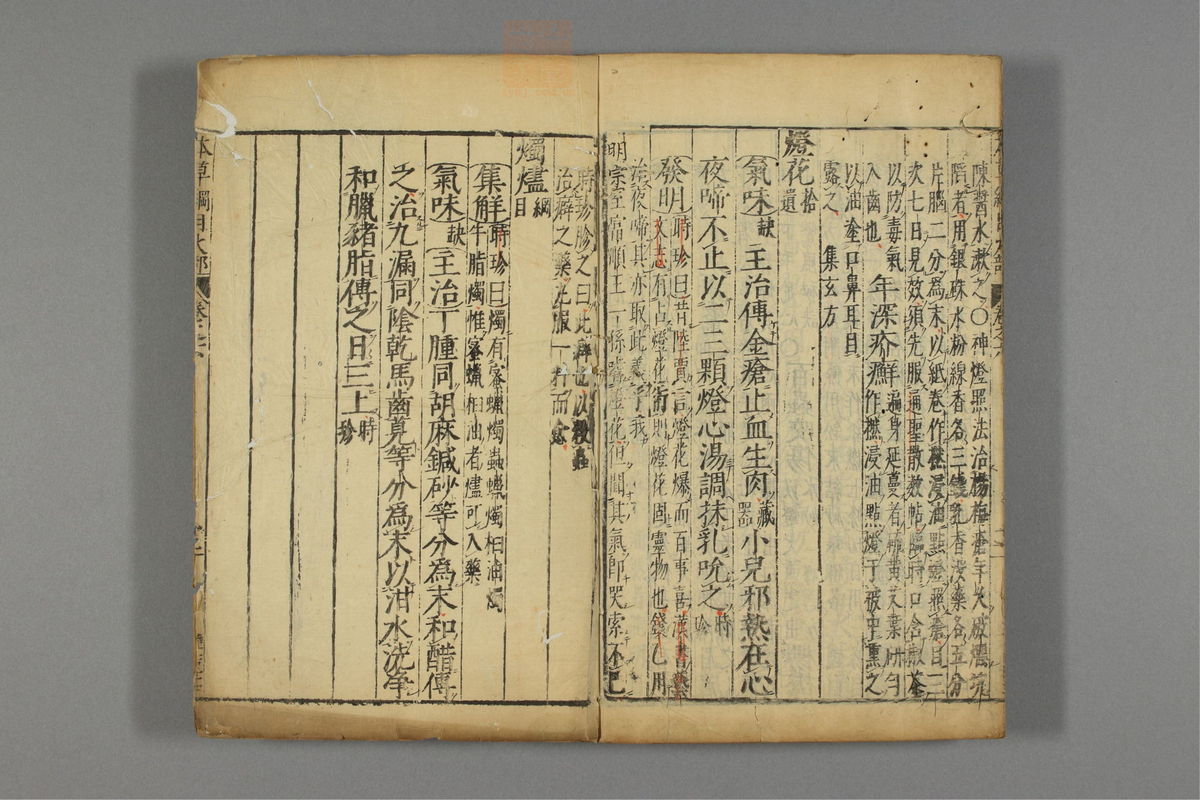 陳醬水漱之〇神燈照法治楊梅瘡年久破爛坑
陷者用銀硃水粉線香各三錢乳香沒藥各五分
片腦二分為末以紙卷作撚浸油點燈照瘡日三
次七日見效須先服通聖散數帖臨時口含
以防毒氣
入齒也
年深疥癬遍身延蔓者硫黃艾葉研勻
作撚浸油點燈于被中熏之
以油塗口鼻耳目
露之
集玄方
燈花拾遺
氣味缺主治傅金瘡止血生肉藏器小兒邪熱在心
夜啼不止以二三顆燈心湯調抹乳吮之時珍
發明時珍曰昔陸賈言燈花爆而百事喜漢書藝
文志有占燈花術則燈花固靈物也錢乙用
治夜啼其亦取此義乎我
明宗室富順王一孫嗜燈花但聞其氣即哭索不已
時珍診之曰此癖也以殺蟲
治癖之藥丸服一料而愈
燭燼綱目
集解時珍曰燭有蜜蠟燭蟲蠟燭柏油燭
牛脂燭惟蜜蠟柏油者燼可入藥
氣味缺主治丁腫同胡麻鍼砂等分為末和醋傅
之治九漏同陰乾馬齒莧等分為末以泔水洗淨
和臘豬脂傅之日三上時珍
本草綱目火部 卷之六